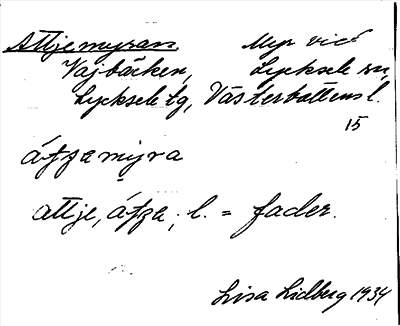 Attjemyran. Myr vid
Vajbäcken, Lycksele sn,
Lycksele tg, Västerbottens l.
15
áʈʂamyra
attje, áʈʂa, l. = fader.
Lisa Lidberg 1934